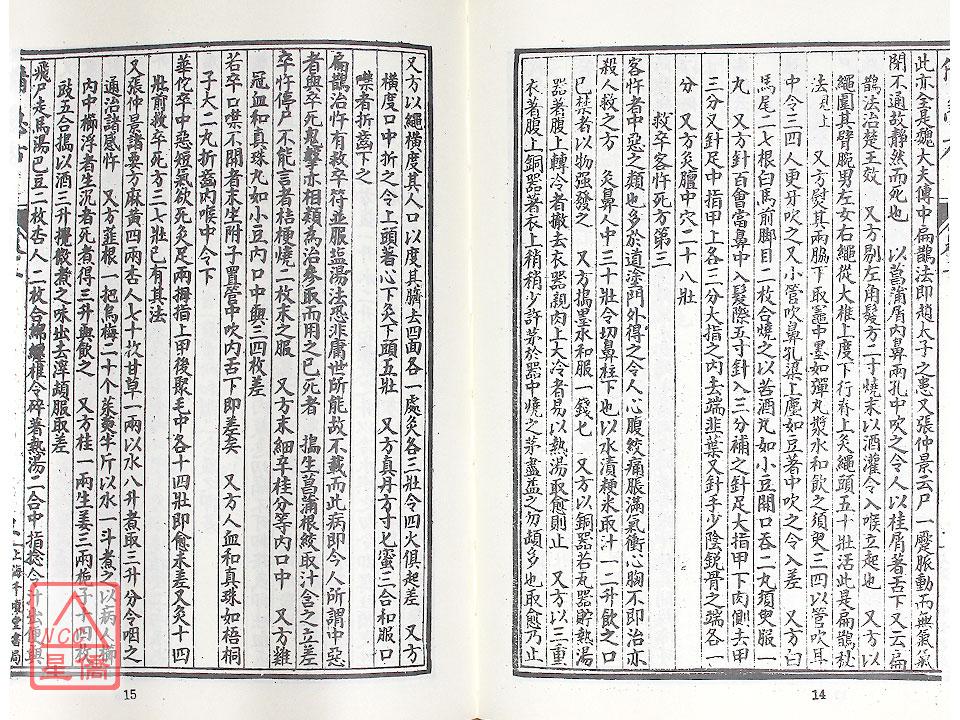 此亦全是魏大夫傳中扁鵲法即趙太子之患又張仲景云尸一蹷脈動而無氣氣
閉不通故靜然而死也　以菖蒲屑内鼻兩孔中吹之令人以桂屑著舌下又云扁
鵲法治楚王效　又方剔左角髮方二寸燒末以酒灌令入喉立起也　又方以
繩圍其臂腕男左女右繩從大椎上度下行脊上灸繩頭五十壯活此是扁鵲秘
法　又方熨其兩脇下取竈中墨如彈丸漿水和飲之須臾三四以管吹耳
中令三四人更互吹之又小管吹鼻孔梁上塵如豆著中吹之令入差　又方白
馬尾二七根白馬前脚目二枚合燒之以苦酒丸如小豆開口吞二丸須臾服一
丸　又方針百會當鼻中入髮際五寸針入三分補之針足大指甲下肉側去甲
三分又針足中指甲上各三分大指之内去端韭葉又針手少陰銳骨之端各一
分　又方灸膻中穴二十八壯
救卒客忤死方第三
客忤者中惡之類也多於道塗門外得之令人心腹絞痛脹滿氣衝心胸不即治亦
殺人救之方　灸鼻人中三十壯令切鼻柱下也　以水漬粳米取汁一二升飲之口
已禁者以物强發之　又方搗墨水和服一錢匕　又方以銅器若瓦器貯熱湯
器著腹上轉冷者撤去衣器親肉上大冷者易以熱湯取愈則止　又方以三重
衣著腹上銅器著衣上稍稍少許茅於器中燒之茅盡益之勿頓多也取愈乃止
14
又方以繩橫度其人口以度其臍去四面各一處灸各三壯令四火俱起差　又方
橫度口中折之令上頭著心下灸下頭五壯　又方真丹方寸匕蜜三合和服口
噤者折齒下之
扁鵲治忤有救卒符并服鹽湯法恐非庸世所能故不載而此病即今人所謂中惡
者與卒死鬼擊亦相類為治參取而用之已死者　搗生菖蒲根絞取汁含之立差
卒忤停尸不能言者桔梗燒二枚末之服　又方末細辛桂分等内口中　又方雞
冠血和真珠丸如小豆内口中與三四枚差
若卒口噤不開者末生附子置管中吹内舌下即差矣　又方人血和真珠如梧桐
子大二丸折齒内喉中令下
華佗卒中惡短氣欲死灸足兩拇指上甲後聚毛中各十四壯即愈未差又灸十四
壯前救卒死方三七壯已有其法
又張仲景諸要方麻黃四兩杏人七十枚甘草一兩以水八升煮取三升分令咽之
通治諸感忤　又方韭根一把烏梅二十个茱萸半斤以水一斗煮之以病人櫛
内中櫛浮者生沉者死煮得三升與飲之　又方桂一兩生姜三兩梔子十四枚
豉五合搗以酒三升攪微煮之味出去滓頓服取差
飛尸走馬湯巴豆二枚杏人二枚合綿纏椎令碎著熱湯二合中指捻令汁出便與
上海千頃堂書局
15
NCC
星僑